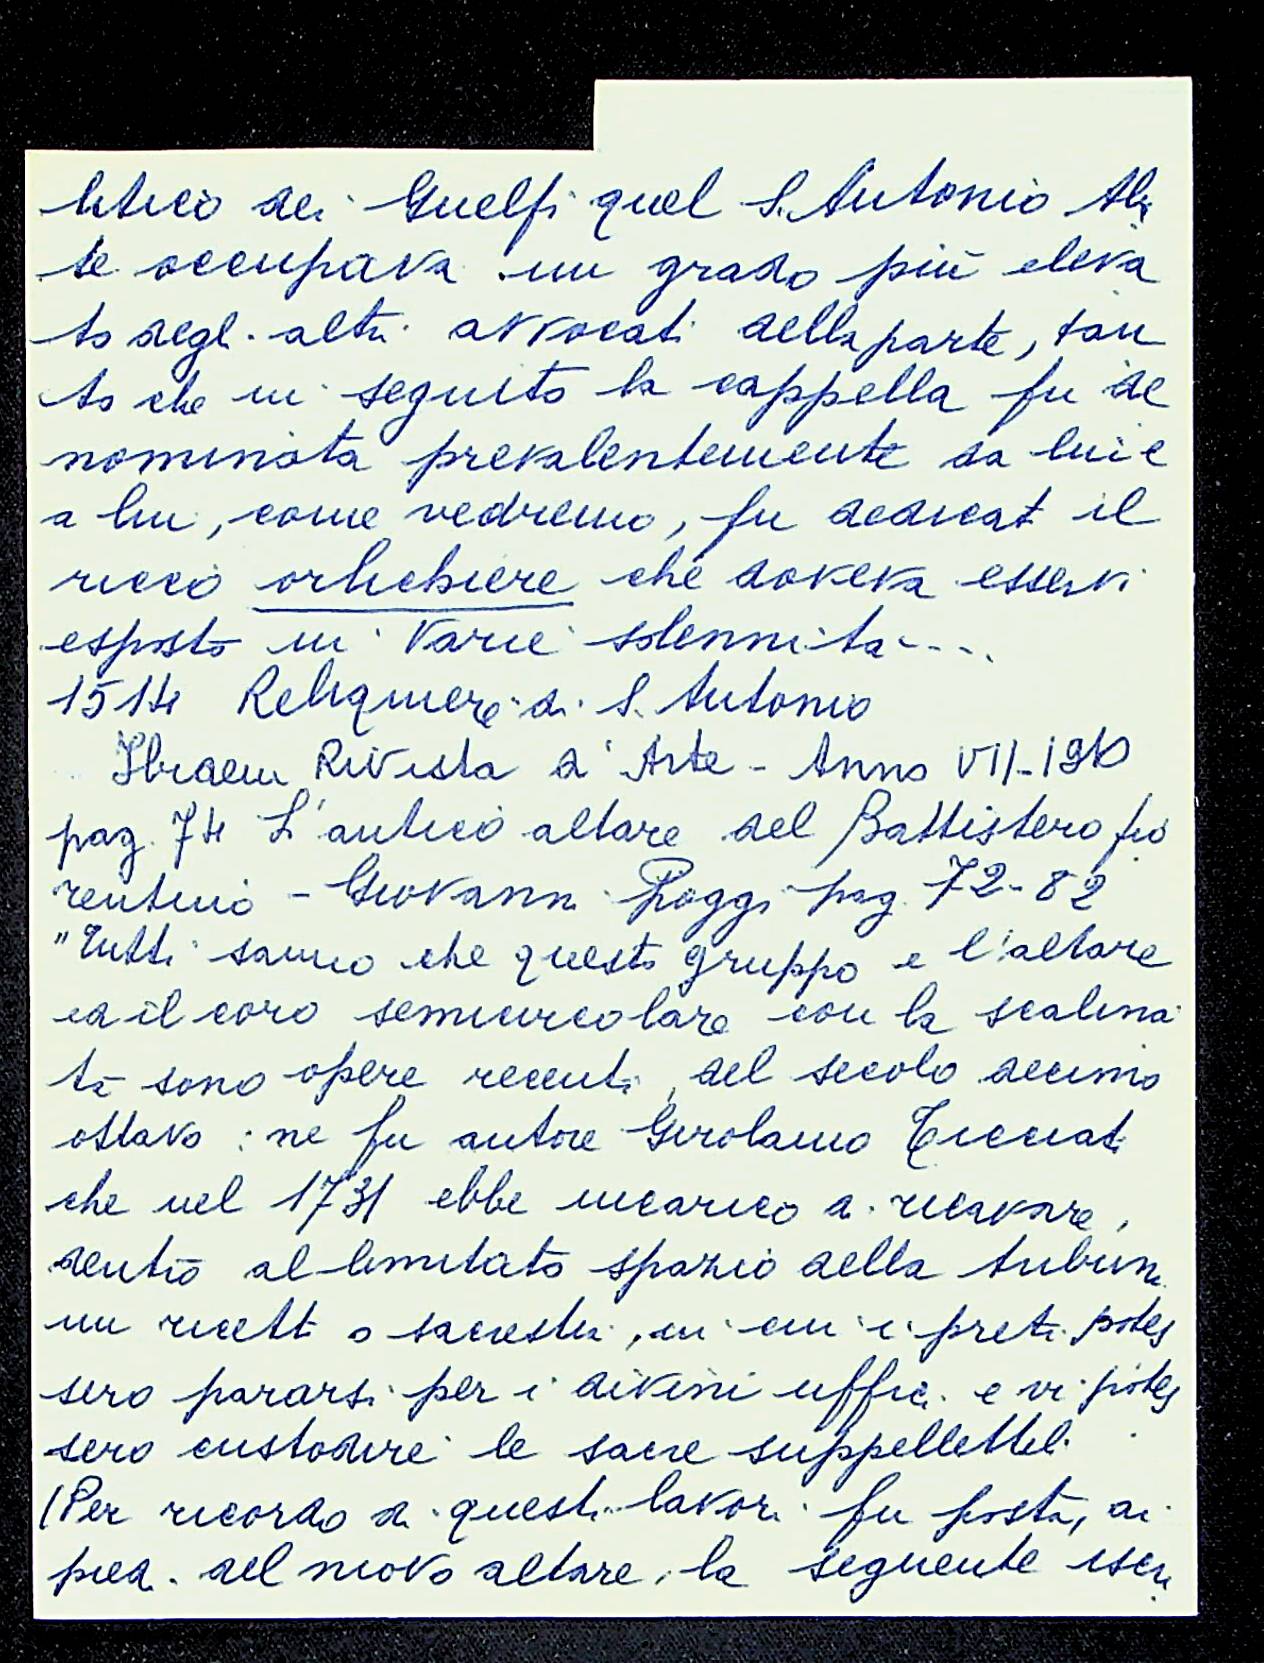 litico dei Guelfi quel S. Antonio Aba
te occupava un grado più eleva
to degli altri avvocati della parte, tan
to che in seguito la cappella fu de
nominata prevalentemente da lui e
a lui, come vedremo, fu dedicat il
ricco orlichiere che doveva esservi
esposto in varie solennità ....
1514 Reliquiere di S. Antonio
Ibidem Rivista d'Arte - Anno VII - 1910
pag. 74 L'antico altare del Battistero fio
rentino - Giovanni Poggi pag. 72-82
"Tutti sanno che questo gruppo e l'altare
ed il coro semicircolare con la scalina
ta sono opere recenti, del secolo decimo
ottavo: ne fu autore Girolamo Ticciati
che nel 1731 ebbe incarico di ricavare,
dentro al limitato spazio della tribuna
un ricetto o sacrestia, in cui i preti potes
sero pararsi per i divini uffici e vi potes
sero custodire le sacre suppellettili.
(Per ricordo di questi lavori fu posta, ai
piedi del nuovo altare, la seguente iscri